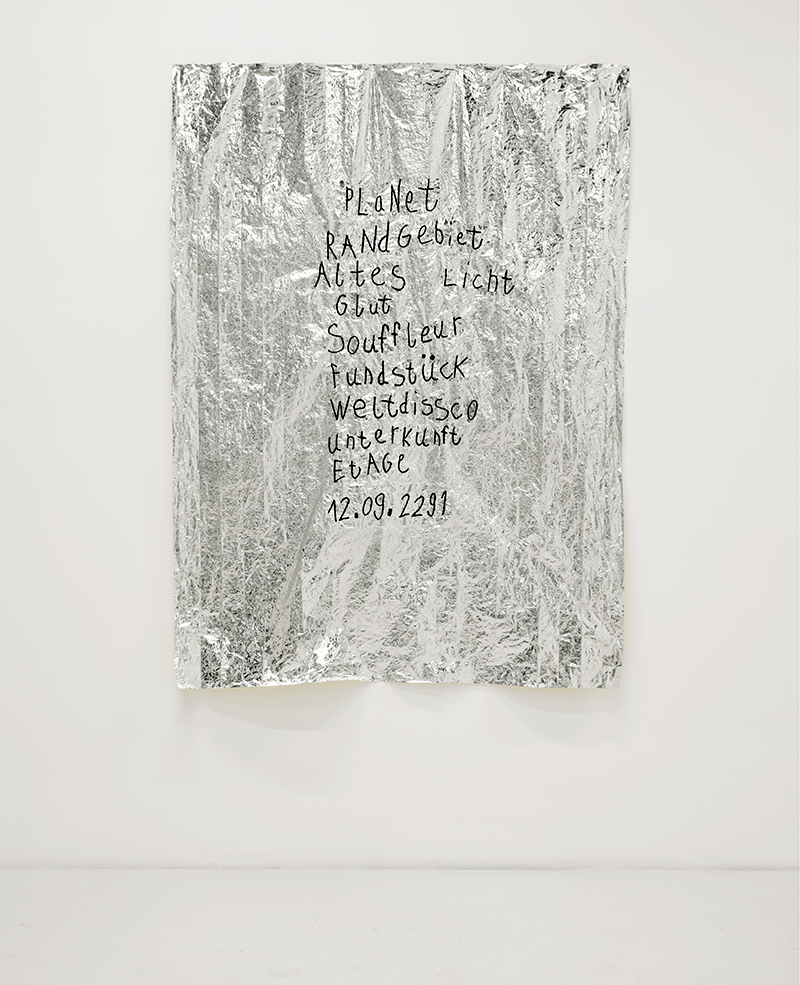 PLaNet
RANdGebiet
Altes Licht
Glut
Souffleur
Fundstück
Weltdissco
unterkunft
EtAGe
12.09.2291